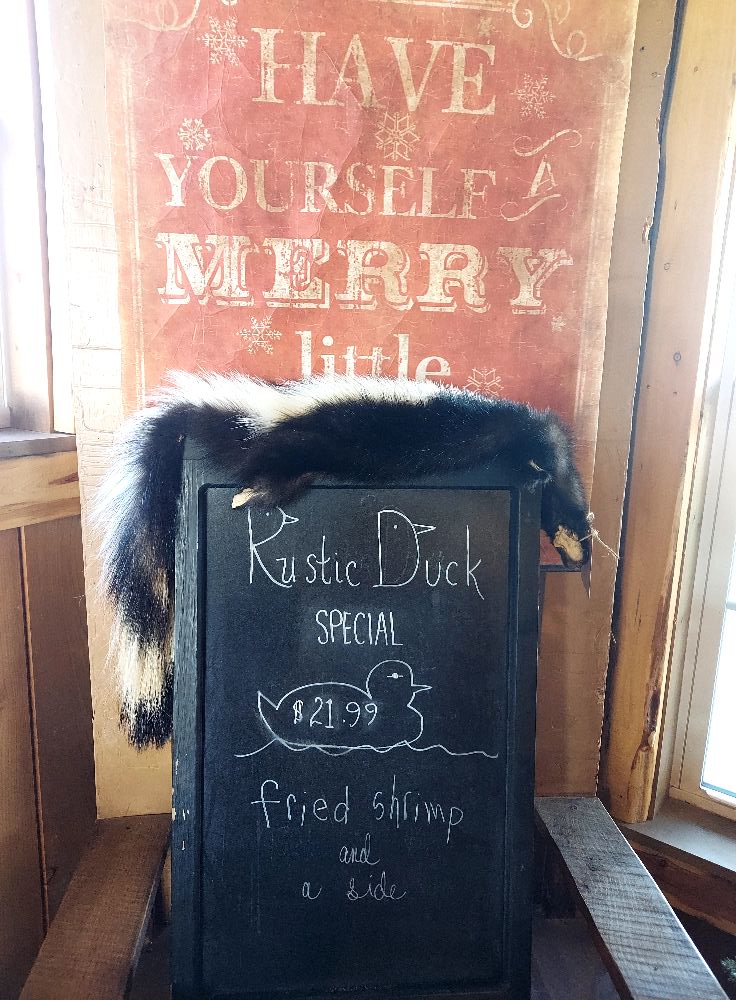 HAVE
YOURSELF A
MERRY
little
Rustic Duck
SPECIAL
$21.99
fried shrimp
and
a side